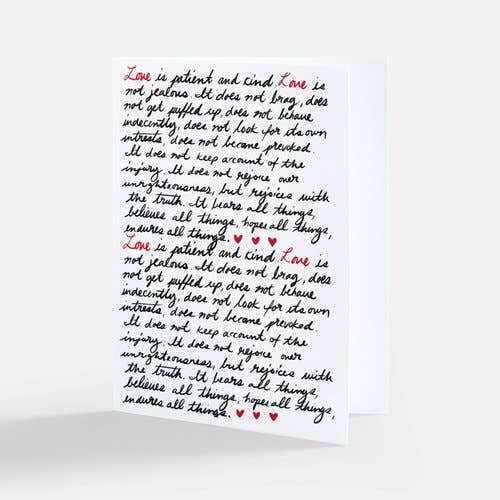 Love is patient and kind. Love is
not jealous. It does not brag, does
not get puffed up, does not behave
indecently, does not look for its own
intrests, does not became provoked.
It does not keep account of the
injury. It does not rejoice over
unrighteousness, but rejoices with
the truth. It bears all things,
believes all things, hopes all things,
endures all things. ♥ ♥ ♥
Love is patient and kind. Love is
not jealous. It does not brag, does
not get puffed up, does not behave
indecently, does not look for its own
intrests, does not became provoked.
It does not keep account of the
injury. It does not rejoice over
unrighteousness, but rejoices with
the truth. It bears all things,
believes all things, hopes all things,
endures all things. ♥ ♥ ♥